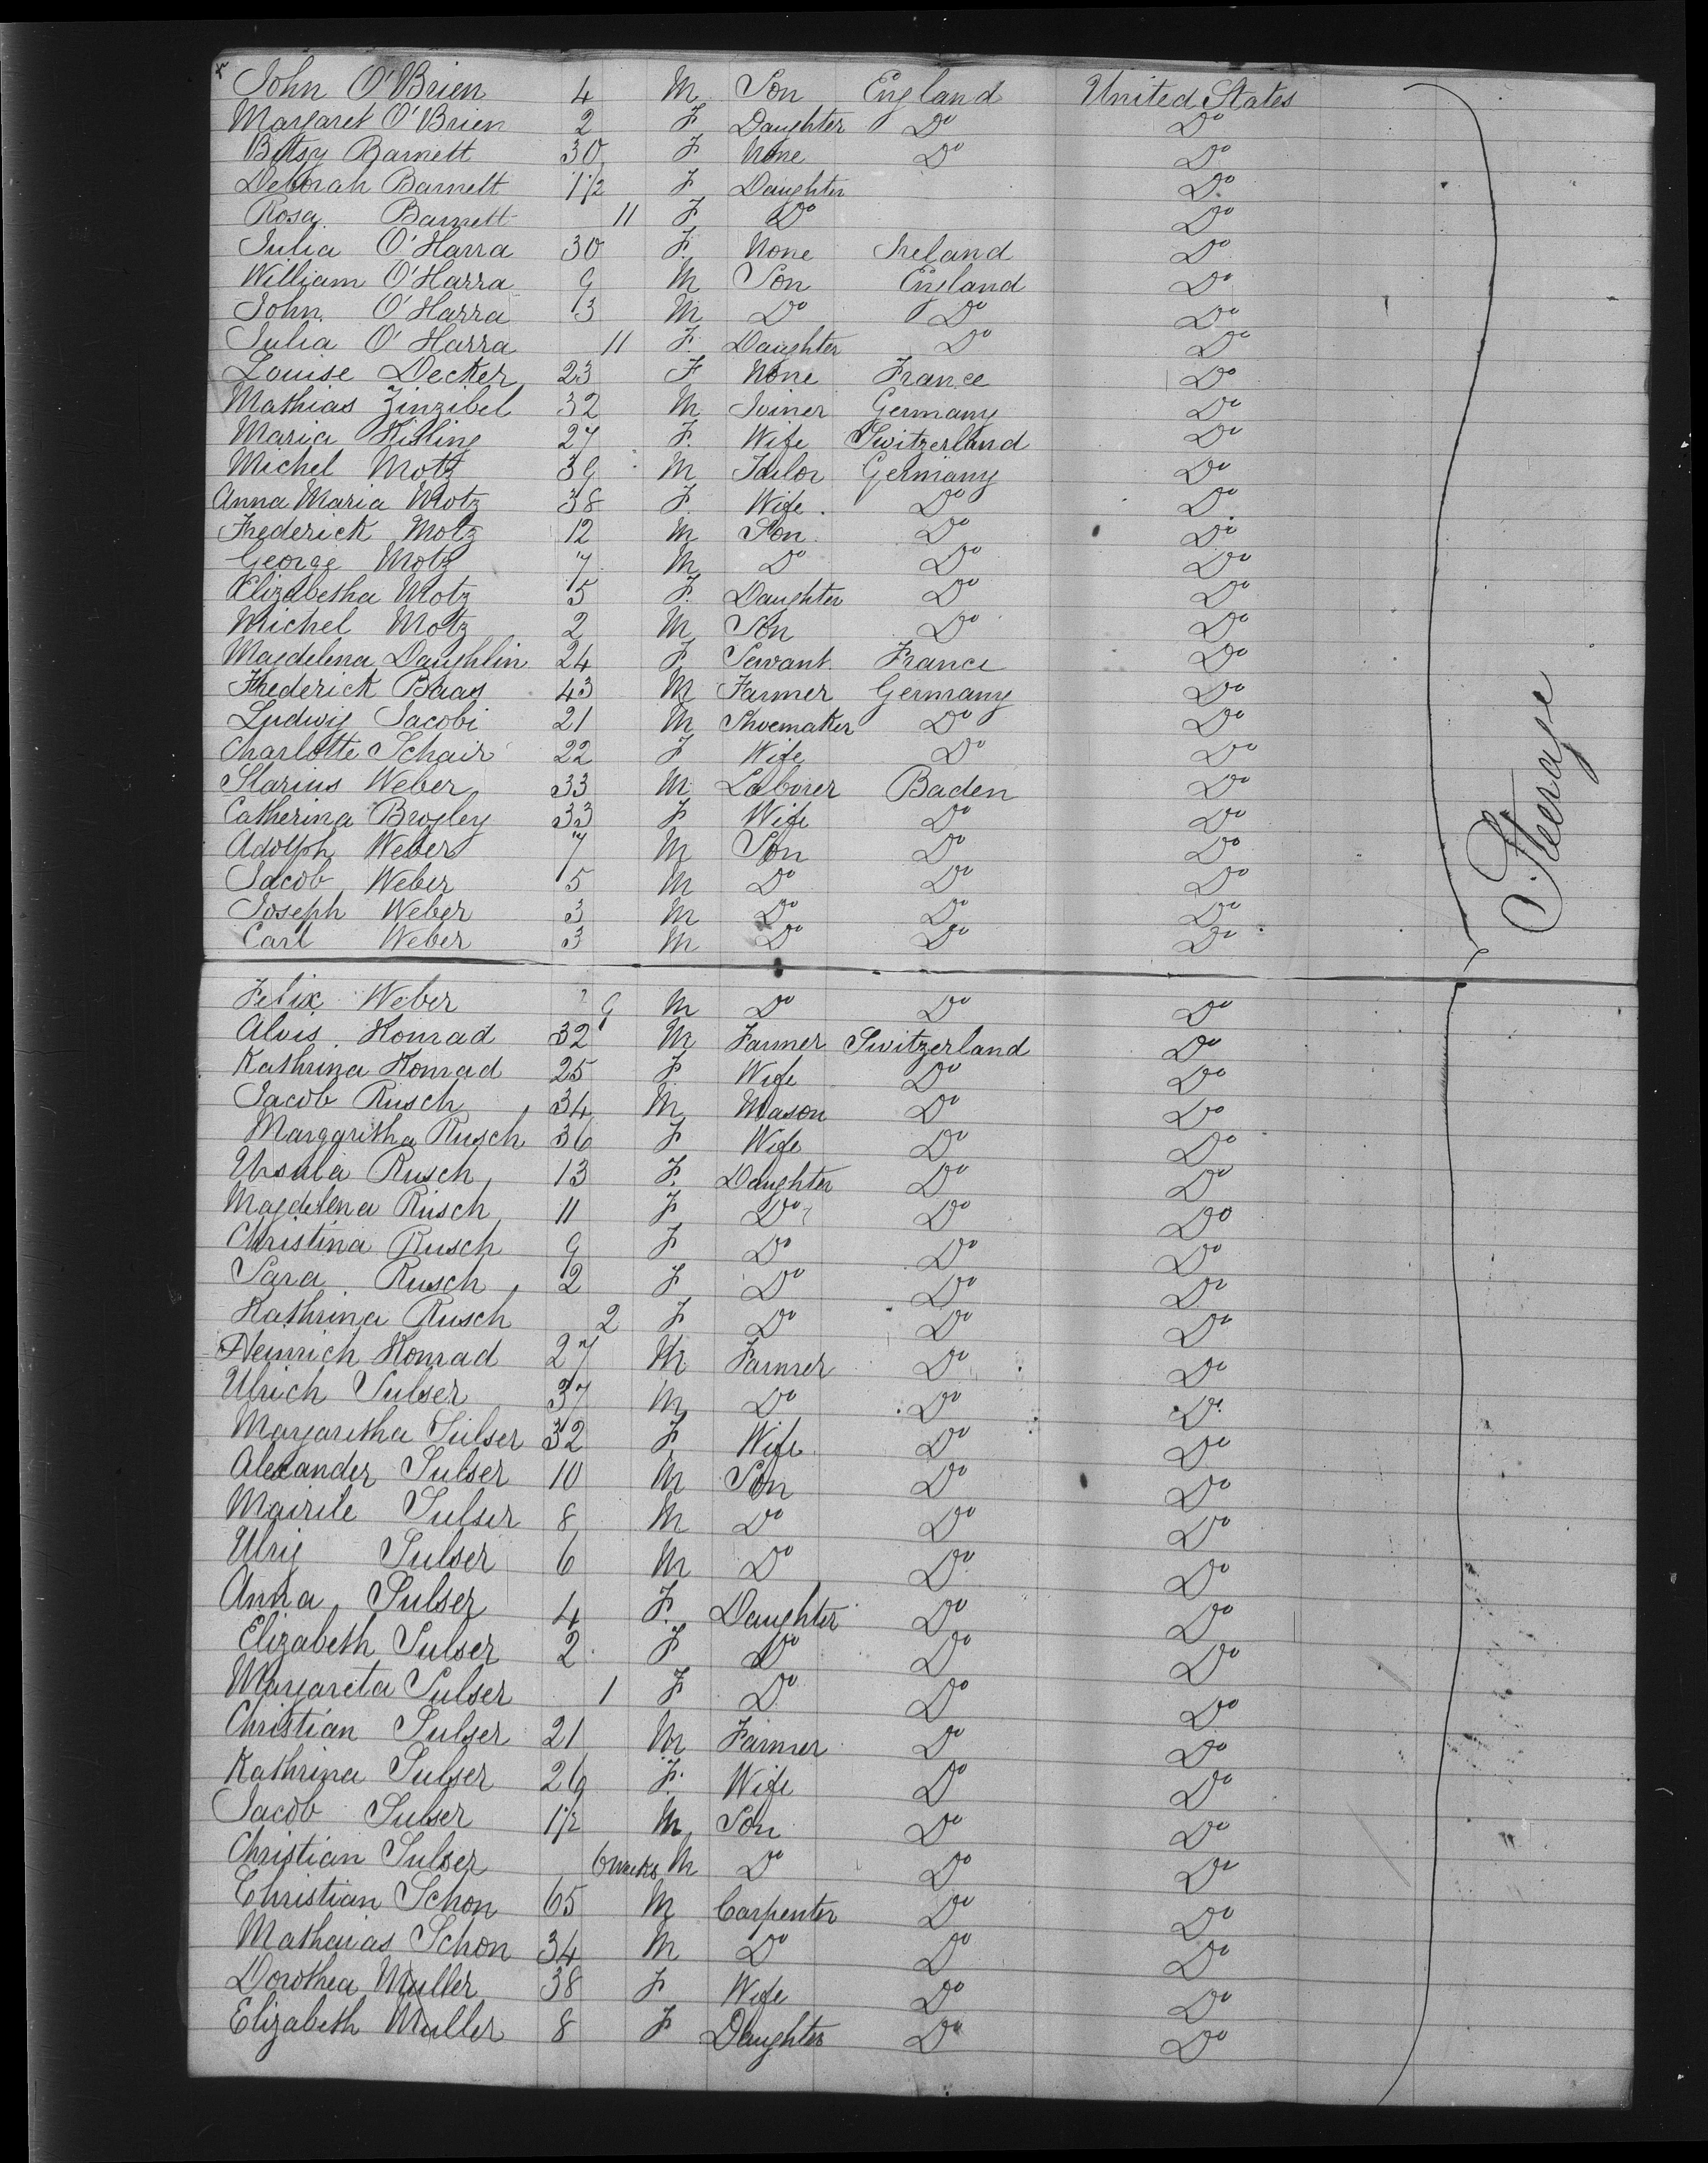 John O'Brien 4 M Son England United States
Margaret O'Brien 2 F Daughter Do Do
Betsy Barnett 30 F None Do Do
Deborah Barnett 1 1/2 F Daughter Do
Rosa Barnett 11 F Do Do
Julia O'Harra 30 F. None Ireland Do
William O'Harra 9 M Son England Do
John O'Harra 3 M Do Do Do
Julia O'Harra 11 F. Daughter Do Do
Louise Decker 23 F None France Do
Mathias Zinzibel 32 M Joiner Germany Do
Maria Kisling 27 F. Wife Switzerland Do
Michel Motz 39 M Tailor Germany Do
Anna Maria Motz 38 F. Wife Do Do
Frederick Motz 12 M Son Do Do
George Motz 7 M Do Do Do
Elizabetha Motz 5 F. Daughter Do Do
Michel Motz 2 M Son Do Do
Magdelena Daughlin 24 F Servant France Do
Frederick Baas 43 M Farmer Germany Do
Ludwig Jacobi 21 M Shoemaker Do Do
Charlotte Schair 22 F Wife Do Do
Slarius Weber 33 M Laborer Baden Do
Catherina Brogley 33 F Wife Do Do
Adolph Weber 7 M Son Do Do
Jacob Weber 5 M Do Do Do
Joseph Weber 3 M Do Do Do
Carl Weber 3 M Do Do Do
Steerage
Felix Weber 9 M Do Do Do
Alois Konrad 32 M Farmer Switzerland Do
Kathrina Konrad 25 F Wife Do Do
Jacob Rusch 34 M Mason Do Do
Margaritha Rusch 36 F Wife Do Do
Ursula Rusch 13 F. Daughter Do Do
Magdelena Rusch 11 F Do Do Do
Christina Rusch 9 F Do Do Do
Sara Rusch 2 F Do Do Do
Kathrina Rusch 2 F Do Do Do
Heinrich Konrad 27 M Farmer Do Do
Ulrich Sulser 37 M Do Do Do
Margaritha Sulser 32 F Wife Do Do
Alexander Sulser 10 M Son Do Do
Mairile Sulser 8 M Do Do Do
Ulrig Sulser 6 M Do Do Do
Anna Sulser 4 F. Daughter Do Do
Elizabeth Sulser 2 F Do Do Do
Margareta Sulser 1 F Do Do Do
Christian Sulser 21 M Farmer Do Do
Kathrina Sulser 26 F. Wife Do Do
Jacob Sulser 1 1/2 M Son Do Do
Christian Sulser 6 weeks M Do Do Do
Christian Schon 65 M Carpenter Do Do
Mathaias Schon 34 M Do Do Do
Dorothea Muller 38 F Wife Do Do
Elizabeth Muller 8 F Daughter Do Do